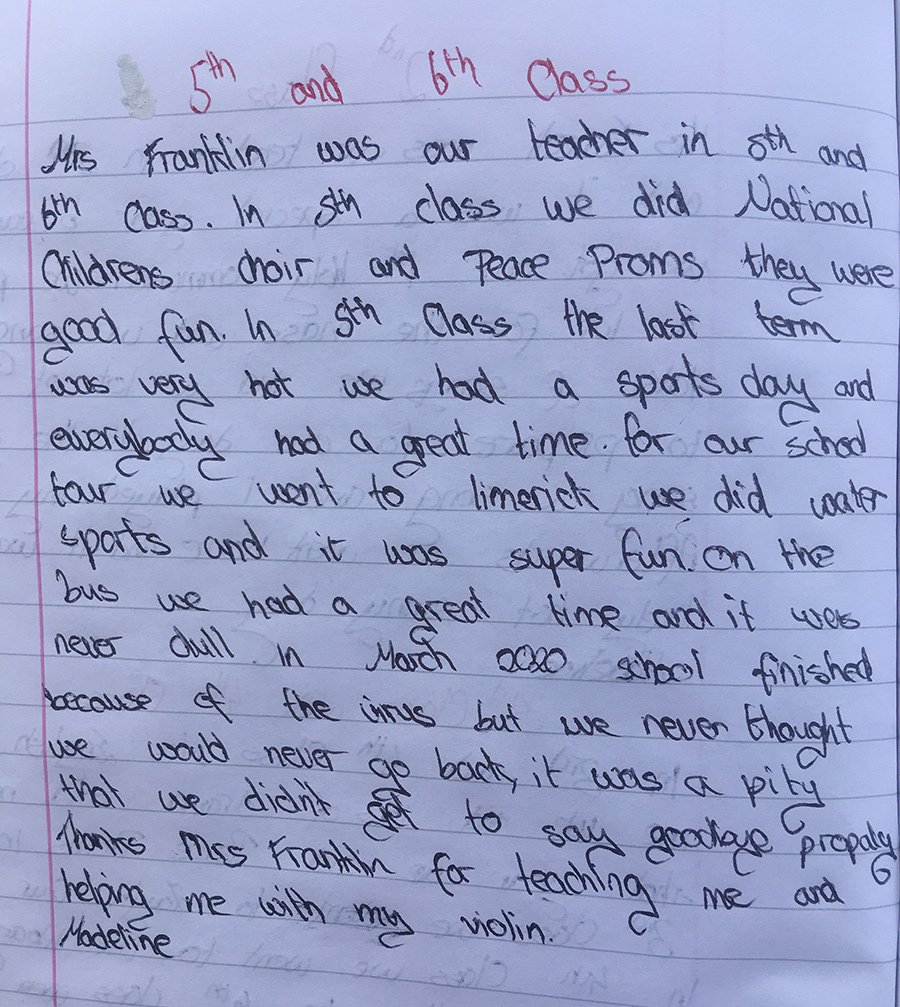 5th and 6th Class
Mrs Franklin was our teacher in 5th and
6th Class. In 5th class we did National
Childrens choir and Peace Proms they were
good fun. In 5th Class the last term
was very hot we had a sports day and
everybody had a great time. for our school
tour we went to limerick we did water
sports and it was super fun. On the
bus we had a great time and it was
never dull. In March 2020 school finished
because of the virus but we never thought
we would never go back, it was a pity
that we didn't get to say goodbye propaly
Thanks Mrs Franklin for teaching me and
helping me with my violin.
Madeline